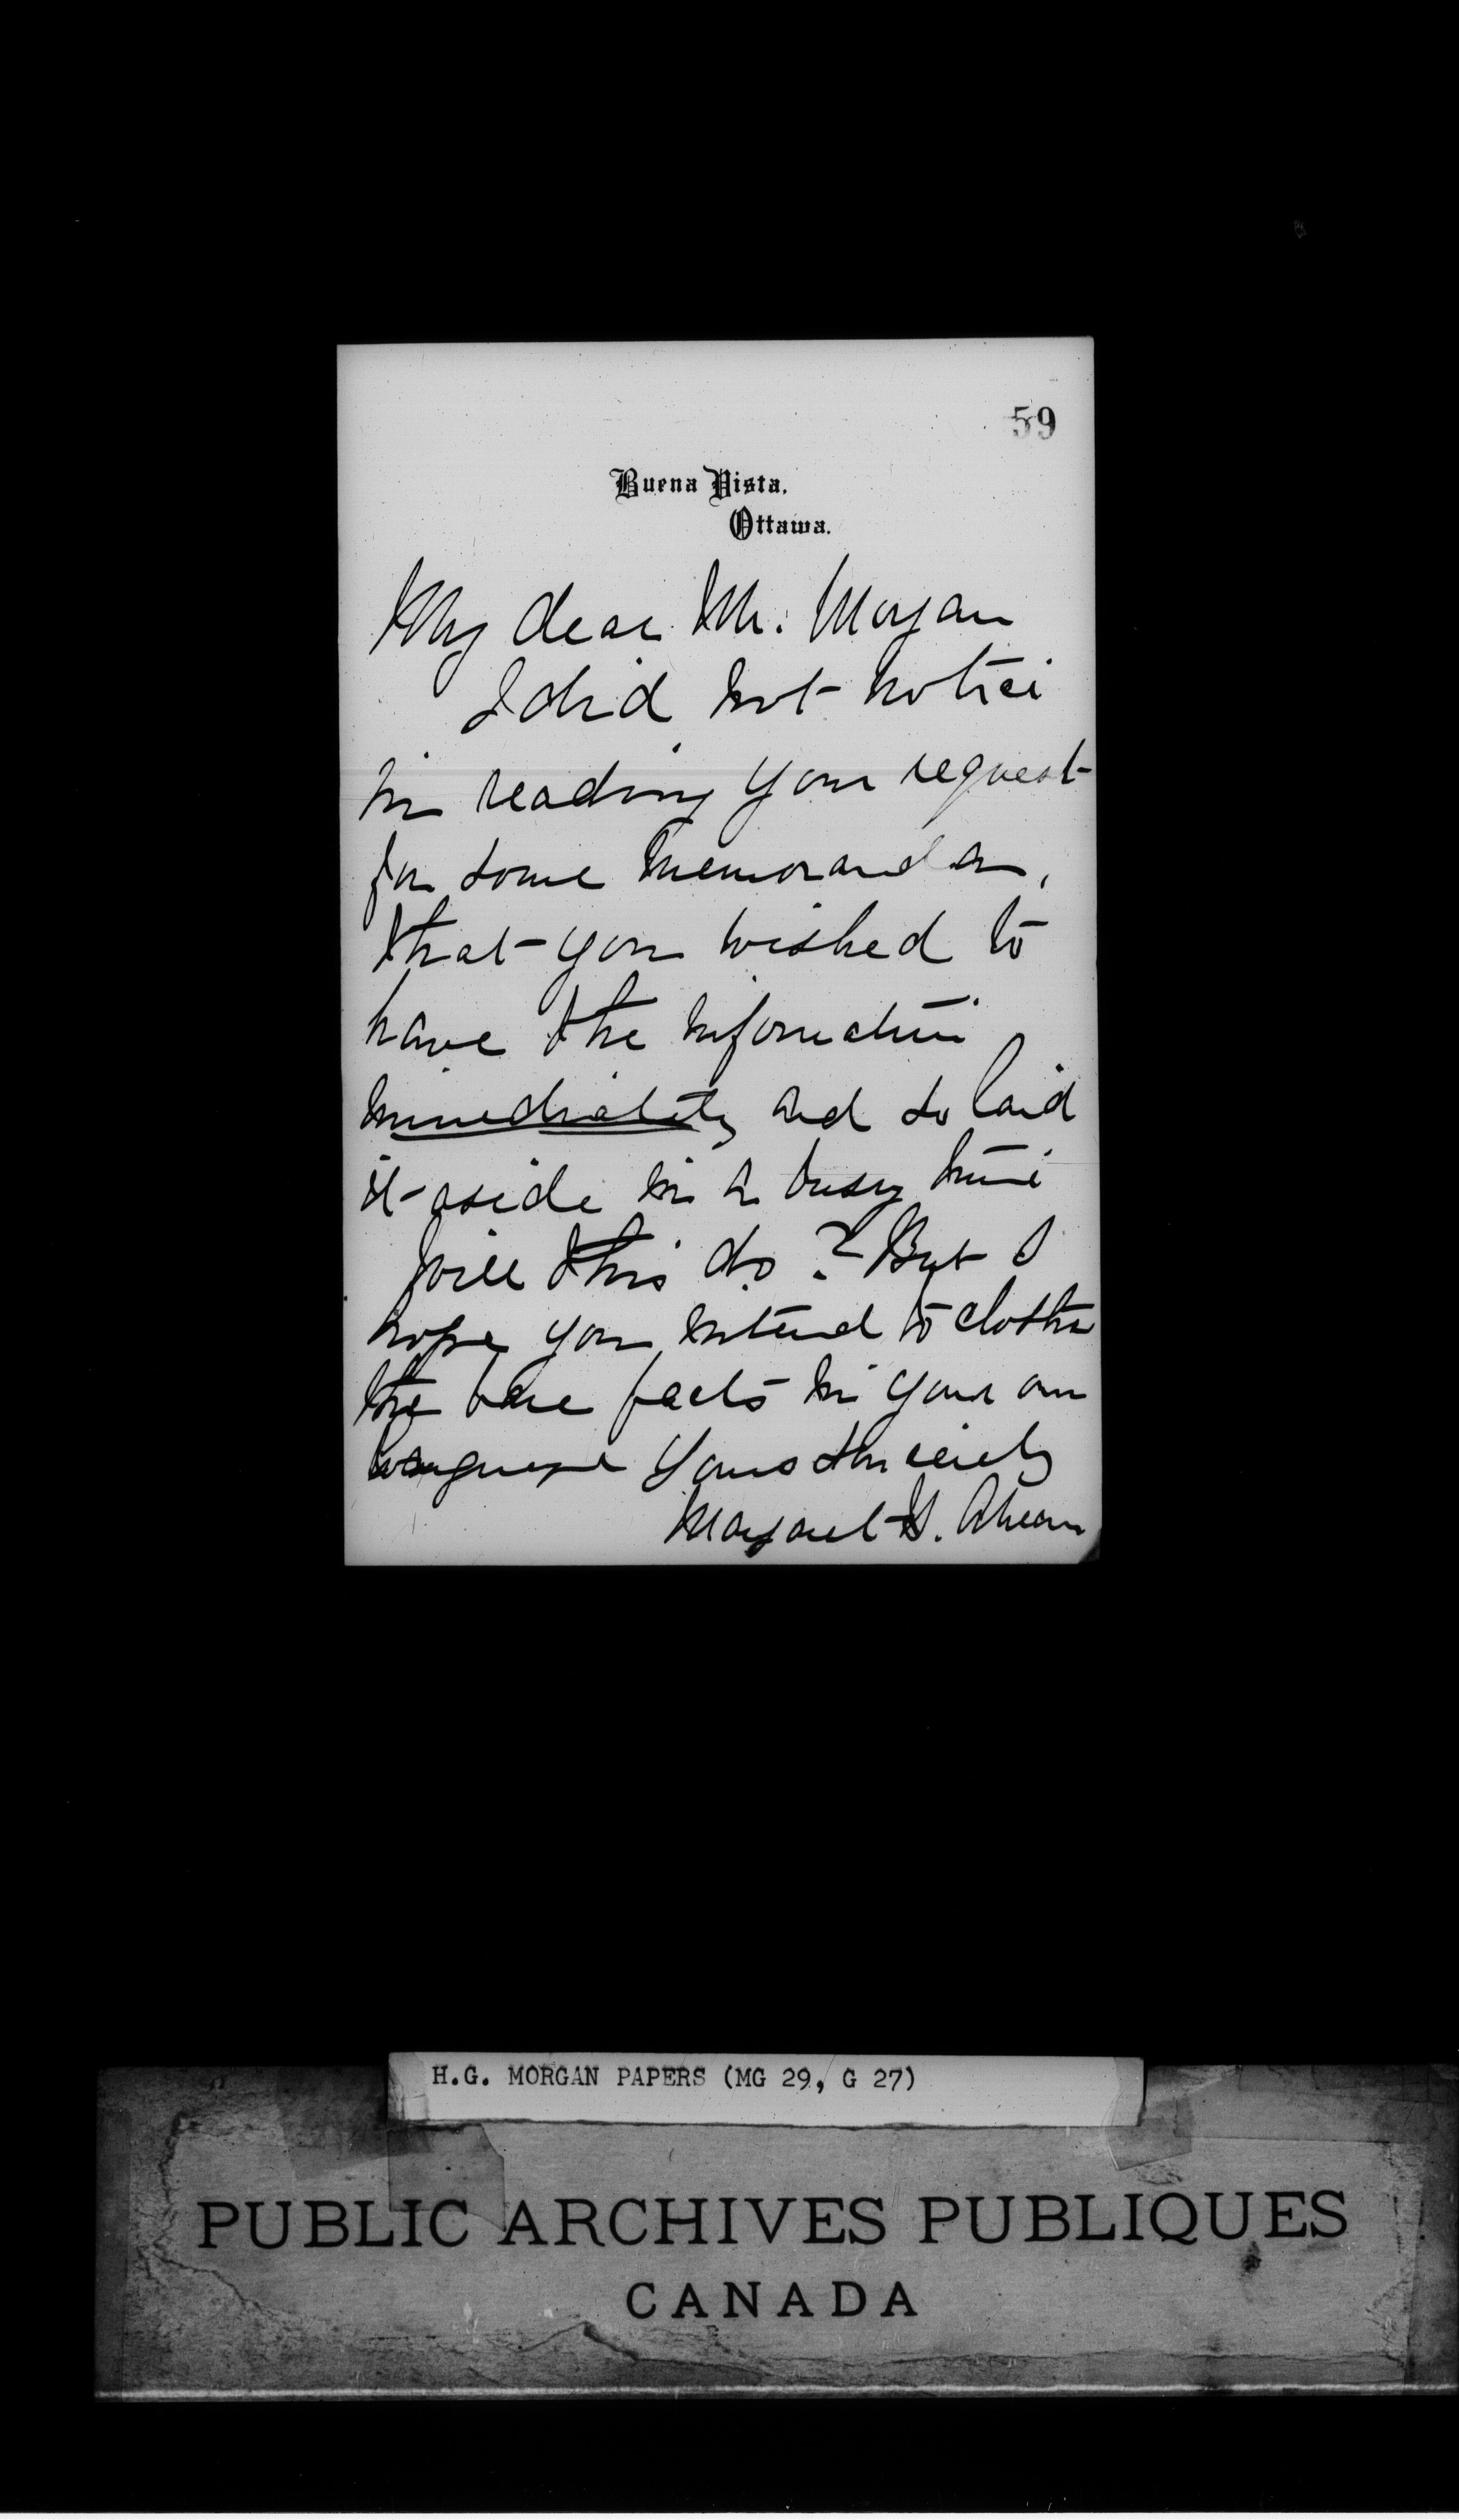 59
Buena Vista.
Ottawa.
My dear Mr. Morgan
I did not notice
in reading your request
for some memoranda,
that you wished to
have the information
immediately and so laid
it aside in a busy time
Will this do? But I
hope you intend to clothe
the bare facts in your own
language Yours sincerely
Margaret H. Ahearn
H.G. MORGAN PAPERS (MG 29, G 27)
PUBLIC ARCHIVES PUBLIQUES
CANADA